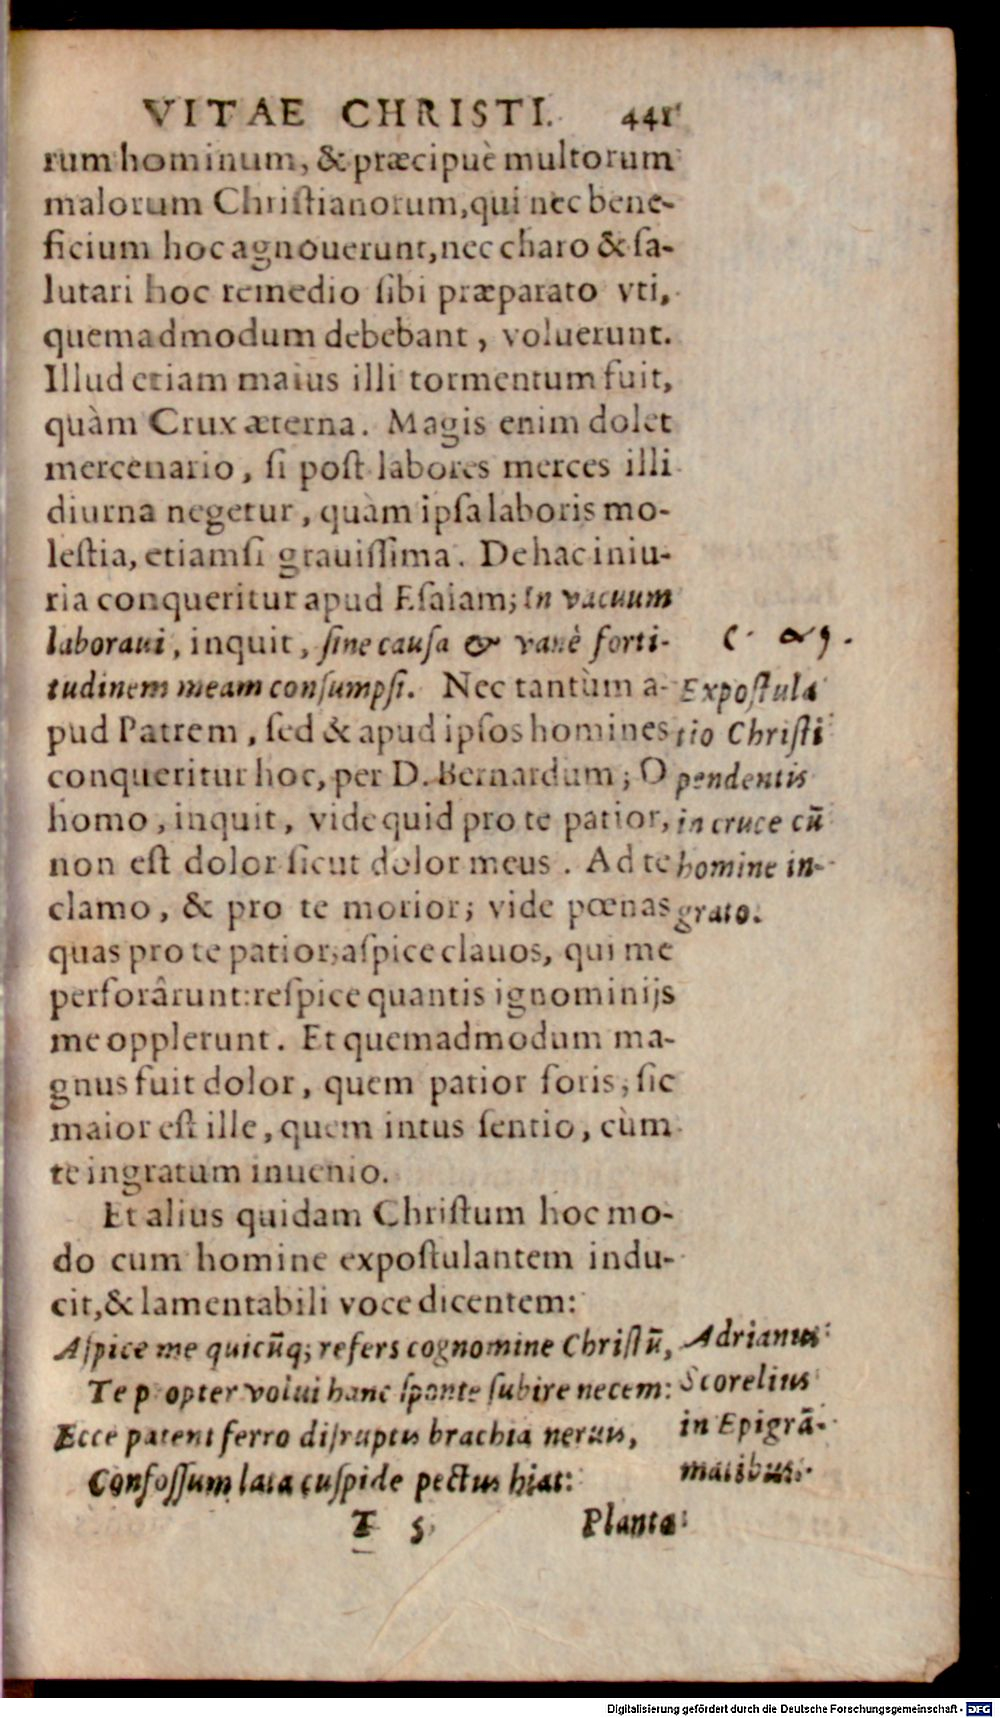 VITAE CHRISTI. 441
rum hominum, & præcipuè multorum
malorum Chriſtianorum, qui nec bene-
ficium hoc agnouerunt, nec charo & ſa-
lutari hoc remedio ſibi præparato vti,
quemadmodum debebant, voluerunt.
Illud etiam maius illi tormentum fuit,
quàm Crux æterna. Magis enim dolet
mercenario, ſi poſt labores merces illi
diurna negetur, quàm ipſa laboris mo-
leſtia, etiamſi grauiſſima. De hac iniu-
ria conqueritur apud Eſaiam; In vacuum
laboraui, inquit, ſine cauſa & vanè forti-
tudinem meam conſumpſi. Nec tantùm a-
pud Patrem, ſed & apud ipſos homines
conqueritur hoc, per D. Bernardum; O
homo, inquit, vide quid pro te patior,
non eſt dolor ſicut dolor meus. Ad te
clamo, & pro te morior; vide pœnas
quas pro te patior; aſpice clauos, qui me
perforârunt: reſpice quantis ignominijs
me opplerunt. Et quemadmodum ma-
gnus fuit dolor, quem patior foris, ſic
maior eſt ille, quem intus ſentio, cùm
te ingratum inuenio.
Et alius quidam Chriſtum hoc mo-
do cum homine expoſtulantem indu-
cit, & lamentabili voce dicentem:
Aſpice me quicūq; refers cognomine Chriſtū,
Te propter volui hanc ſponte ſubire necem:
Ecce patent ferro diſruptis brachia neruis,
Confoſſum lata cuſpide pectus hiat:
T 5 Plantæ
C. 49.
Expoſtula
tio Chriſti
pendentis
in cruce cū
homine in-
grato.
Adrianus
Scorelius
in Epigrā-
matibus.
Digitalisierung gefördert durch die Deutsche Forschungsgemeinschaft - DFG